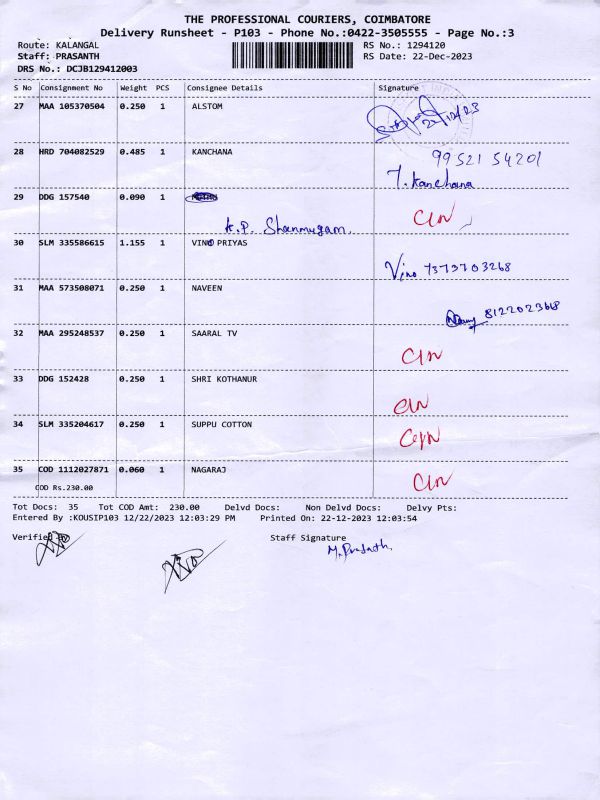 THE PROFESSIONAL COURIERS, COIMBATORE
Delivery Runsheet - P103 - Phone No.:0422-3505555 - Page No.:3
Route: KALANGAL RS No.: 1294120
Staff: PRASANTH RS Date: 22-Dec-2023
DRS No.: DCJB129412003
S No Consignment No Weight PCS Consignee Details Signature
27 MAA 105370504 0.250 1 ALSTOM
28 HRD 704082529 0.485 1 KANCHANA 99521 54201
T. Kanchana
29 DDG 157540 0.090 1
K.P. Shanmugam.
30 SLM 335586615 1.155 1 VINO PRIYAS
Vino 7373703268
31 MAA 573508071 0.250 1 NAVEEN
8122023668
32 MAA 295248537 0.250 1 SAARAL TV
33 DDG 152428 0.250 1 SHRI KOTHANUR
34 SLM 335204617 0.250 1 SUPPU COTTON
35 COD 1112027871 0.060 1 NAGARAJ
COD Rs.230.00
Tot Docs: 35 Tot COD Amt: 230.00 Delvd Docs: Non Delvd Docs: Delvy Pts:
Entered By :KOUSIP103 12/22/2023 12:03:29 PM Printed On: 22-12-2023 12:03:54
Verified By Staff Signature
M. Prasath.